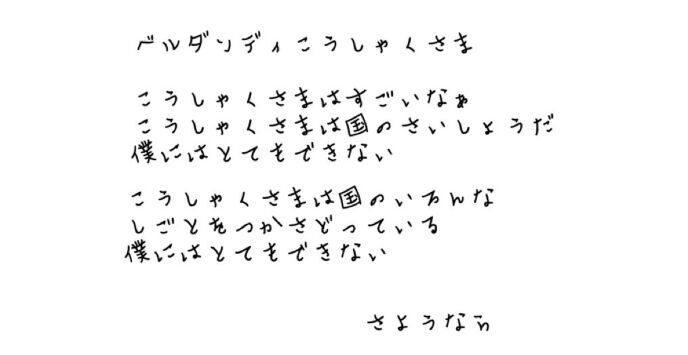 ベルダンディこうしゃくさま
こうしゃくさまはすごいなぁ
こうしゃくさまは国のさいしょうだ
僕にはとてもできない
こうしゃくさまは国のいろんな
しごとをつかさどっている
僕にはとてもできない
さようなら